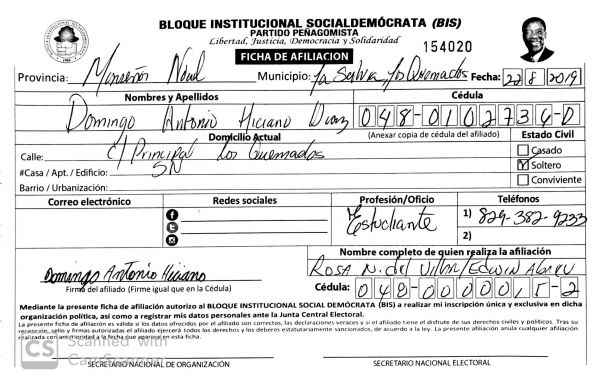 BLOQUE INSTITUCIONAL SOCIALDEMÓCRATA (BIS)
PARTIDO PEÑAGOMISTA
Libertad, Justicia, Democracia y Solidaridad
154020
FICHA DE AFILIACION
Provincia: Monseñor Nouel Municipio: La Salvia Los Quemados Fecha: 22 8 2019
Nombres y Apellidos Cédula
Domingo Antonio Hiciano Diaz 048-0102734-0
Domicilio Actual (Anexar copia de cédula del afiliado) Estado Civil
Calle: C/ Principal Los Quemados Casado
#Casa / Apt. / Edificio: SN Soltero
Barrio / Urbanización: Conviviente
Correo electrónico Redes sociales Profesión/Oficio Teléfonos
Estudiante 1) 829-382-9233
2)
Nombre completo de quien realiza la afiliación
Domingo Antonio Hiciano Rosa N. del Villar/Edwin Abreu
Firma del afiliado (Firme igual que en la Cédula) Cédula: 048-0000015-2
Mediante la presente ficha de afiliación autorizo al BLOQUE INSTITUCIONAL SOCIAL DEMÓCRATA (BIS) a realizar mi inscripción única y exclusiva en dicha
organización política, así como a registrar mis datos personales ante la Junta Central Electoral.
La presente ficha de afiliación es válida si los datos ofrecidos por el afiliado son correctos, las declaraciones veraces y si el afiliado tiene el disfrute de sus derechos civiles y políticos. Tras su
recepción, sello y firmas autorizadas el afiliado ejercerá todos los derechos y los deberes estatutariamente sancionados, de acuerdo a la ley. La presente afiliación anula cualquier afiliación
realizada con anterioridad a la fecha que aparece en esta ficha.
CS Scanned with
CamScanner
SECRETARIO NACIONAL DE ORGANIZACIÓN SECRETARIO NACIONAL ELECTORAL